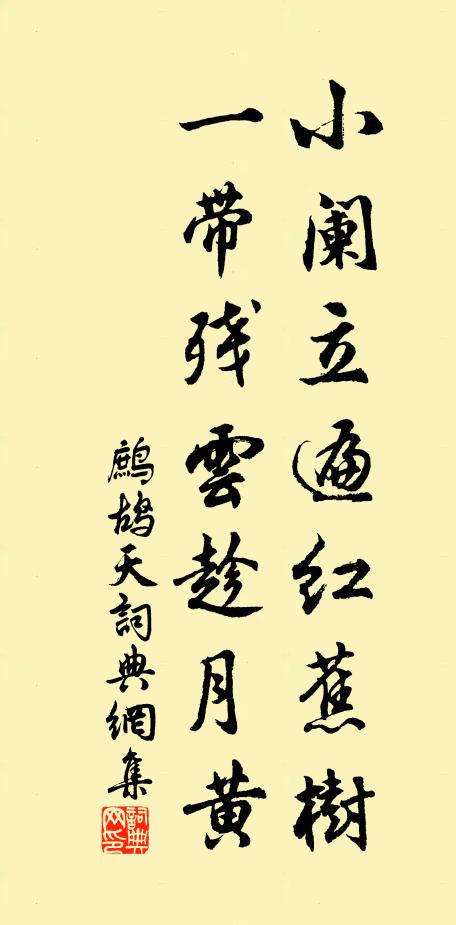 小阑立遍红蕉樹
一带残雲趁月黄
鹧鸪天詞典網集
詞典网印